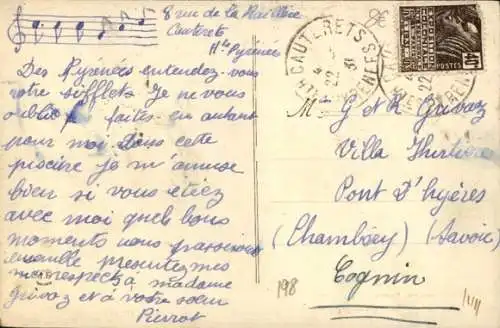 8 rue de la Raillère
Cauterets
Htes Pyrénées
Des Pyrénées entendez-vous
votre sifflet. Je ne vous
oublie faites en autant
pour moi. Dans cette
piscine je m'amuse
bien si vous étiez
avec moi quels bons
moments nous passerions
ensemble présentez mes
respects à madame
Grivaz et à votre sœur
Pierrot
CAUTERETS
22
31
HTES PYRENEES
POSTES
M G et R Grivaz
Villa
Pont d'hyères
(Chambéry) (Savoie)
Cognin
198